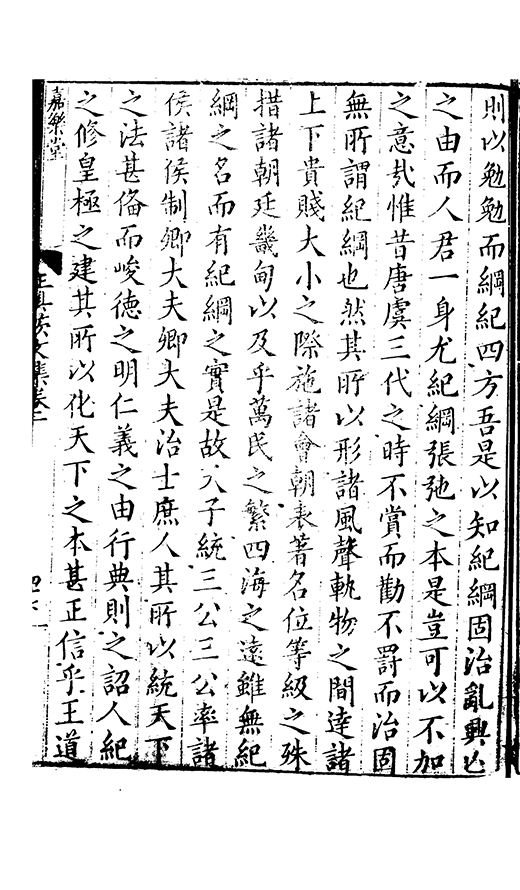 則以勉勉而綱紀四方吾是以知紀綱固治亂興亡
之由而人君一身尤紀綱張弛之本是豈可以不加
之意㢤惟昔唐虞三代之時不賞而勸不罰而治固
無所謂紀綱也然其所以形諸風聲軌物之間達諸
上下貴賤大小之際施諸會朝表著名位等級之殊
措諸朝廷畿甸以及乎萬民之繁四海之遠雖無紀
綱之名而有紀綱之實是故天子統三公三公率諸
侯諸侯制卿大夫卿大夫治士庶人其所以統天下
之法甚俻而峻德之明仁義之由行典則之詔人紀
之修皇極之建其所以化天下之本甚正信乎王道
嘉樂堂
文集卷二